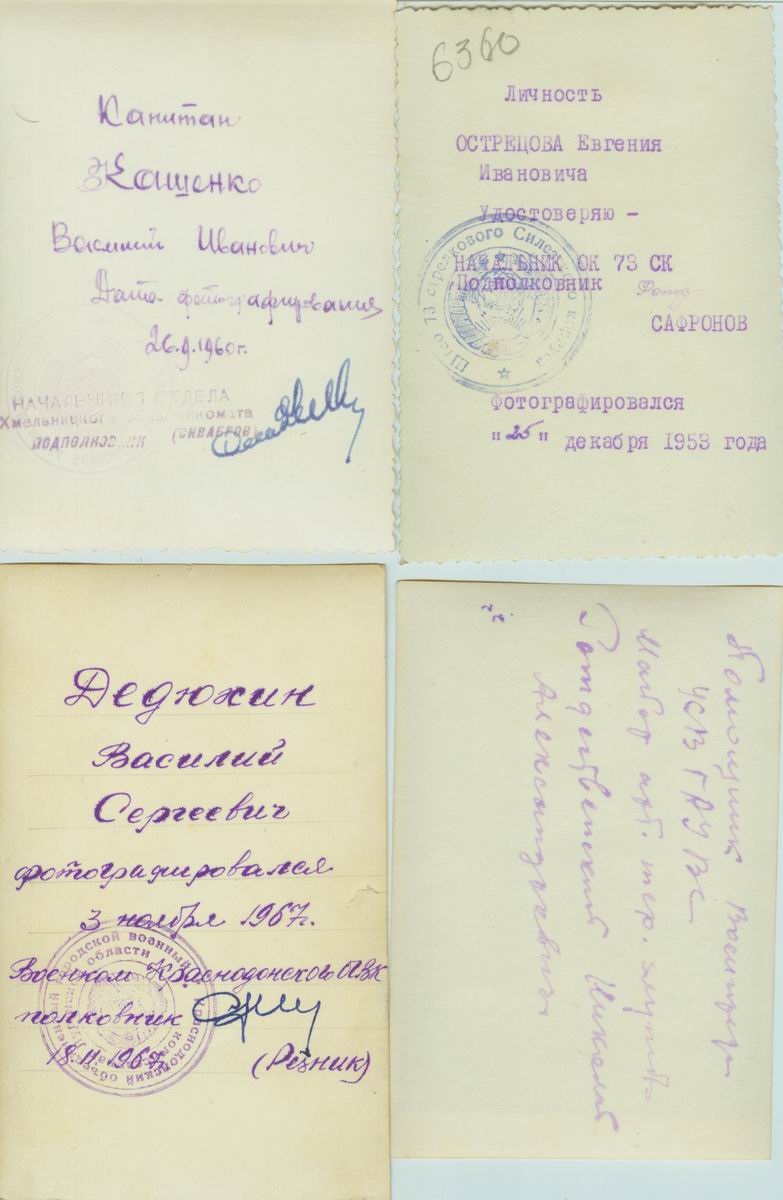 Капитан
Кащенко
Василий Иванович
Дата фотографирования
26.9.1960г.
НАЧАЛЬНИК 3 ОТДЕЛА
Хмельницкого облвоенкомата
ПОДПОЛКОВНИК (СКВАБРОВ)
6360
Личность
ОСТРЕЦОВА Евгения
Ивановича
Удостоверяю -
НАЧАЛЬНИК ОК 73 СК
Подполковник
САФРОНОВ
Штаб 73 стрелкового Силезского корпуса
Фотографировался
"25" декабря 1953 года
Дедюхин
Василий
Сергеевич
фотографировался
3 ноября 1967г.
Военком Краснодонского ОГВК
полковник
18.11.1967г.
(Резник)
Помощник
УСВ ГАУ ВС
Майор арт. тех. службы
Рождественский Николай
Александрович